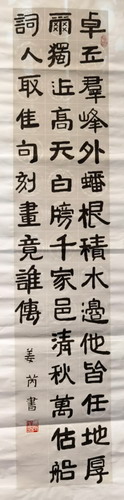 卓立羣峰外蟠根積水邊他皆任地厚
爾獨近高天白牓千家邑清秋萬估船
詞人取佳句刻畫竟誰傳
姜芮書